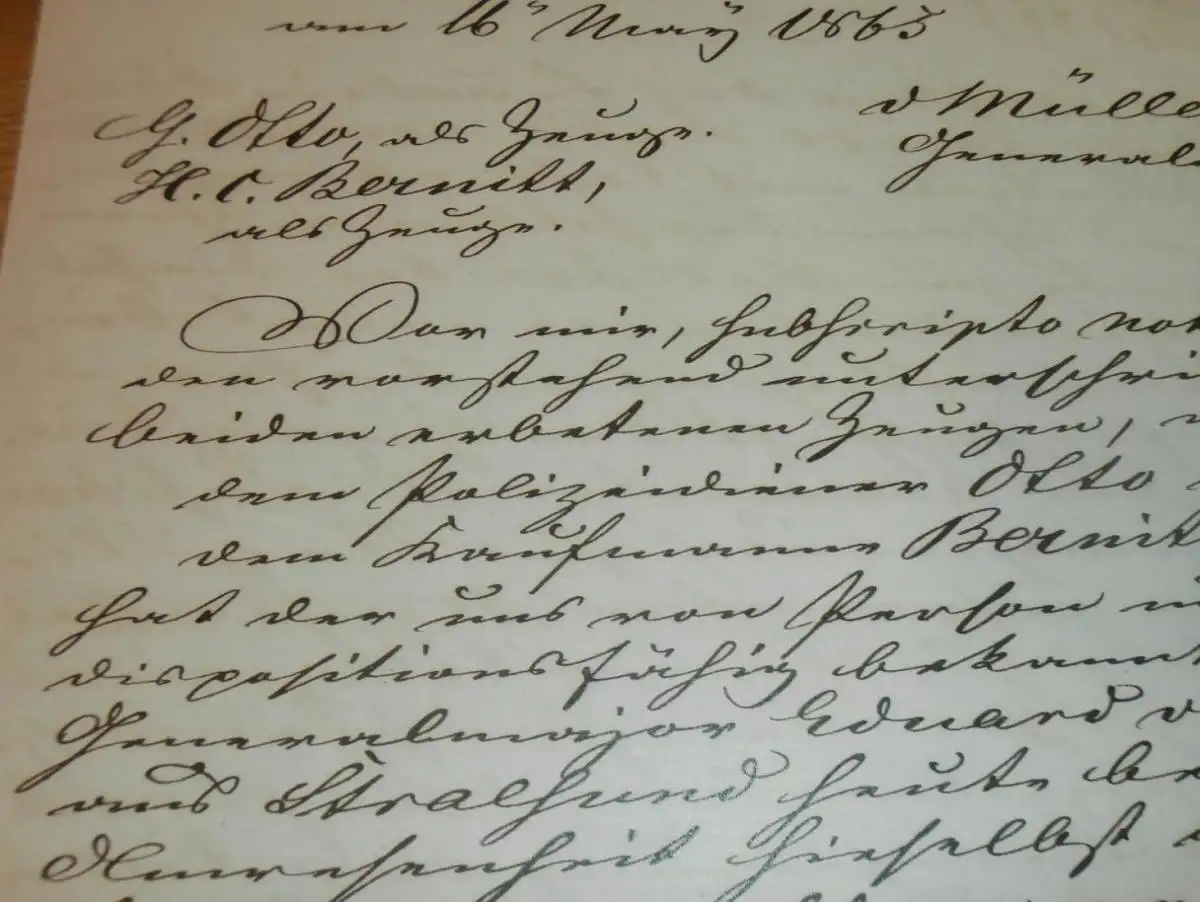 am 16" May 1863
G. Otto, als Zeuge. v Mülle
H. C. Bernitt, General
als Zeuge.
Vor mir, subscripto not
den vorstehend unterschri
beiden erbetenen Zeugen,
dem Polizeidiener Otto
dem Kaufmanne Bernit
hat der uns von Person
dispositionsfähig bekannt
Generalmajor Eduard v
aus Stralsund heute be
Anwesenheit hieselbst